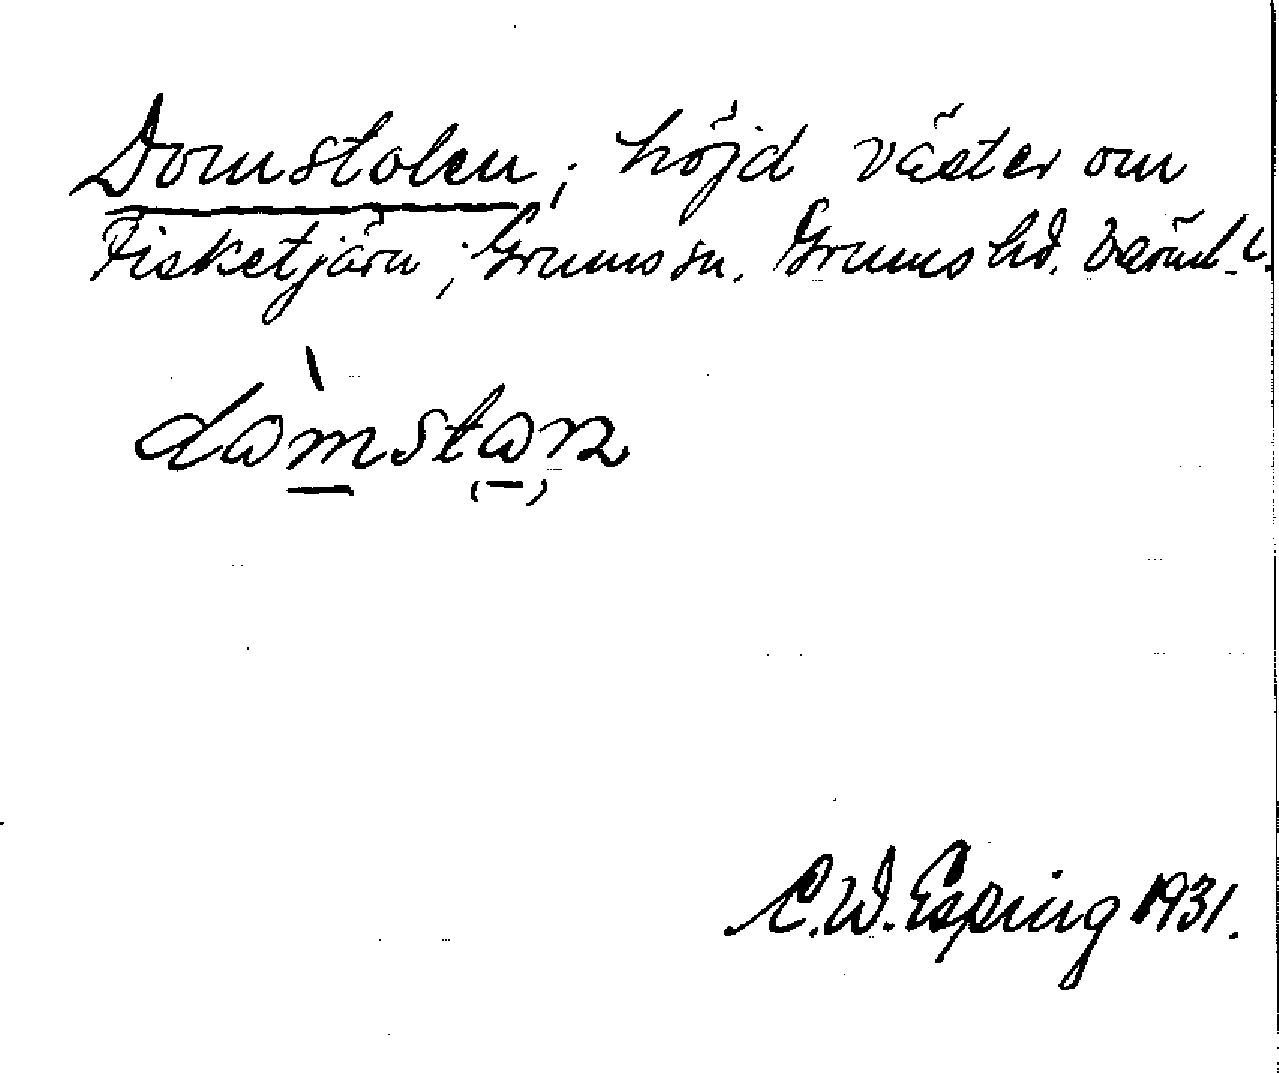 Domstolen; höjd väster om
Fisketjärn; Grums sn. Grums hd. Värml. l.
dɷ̀mstɷn
C. W. Esping 1931.